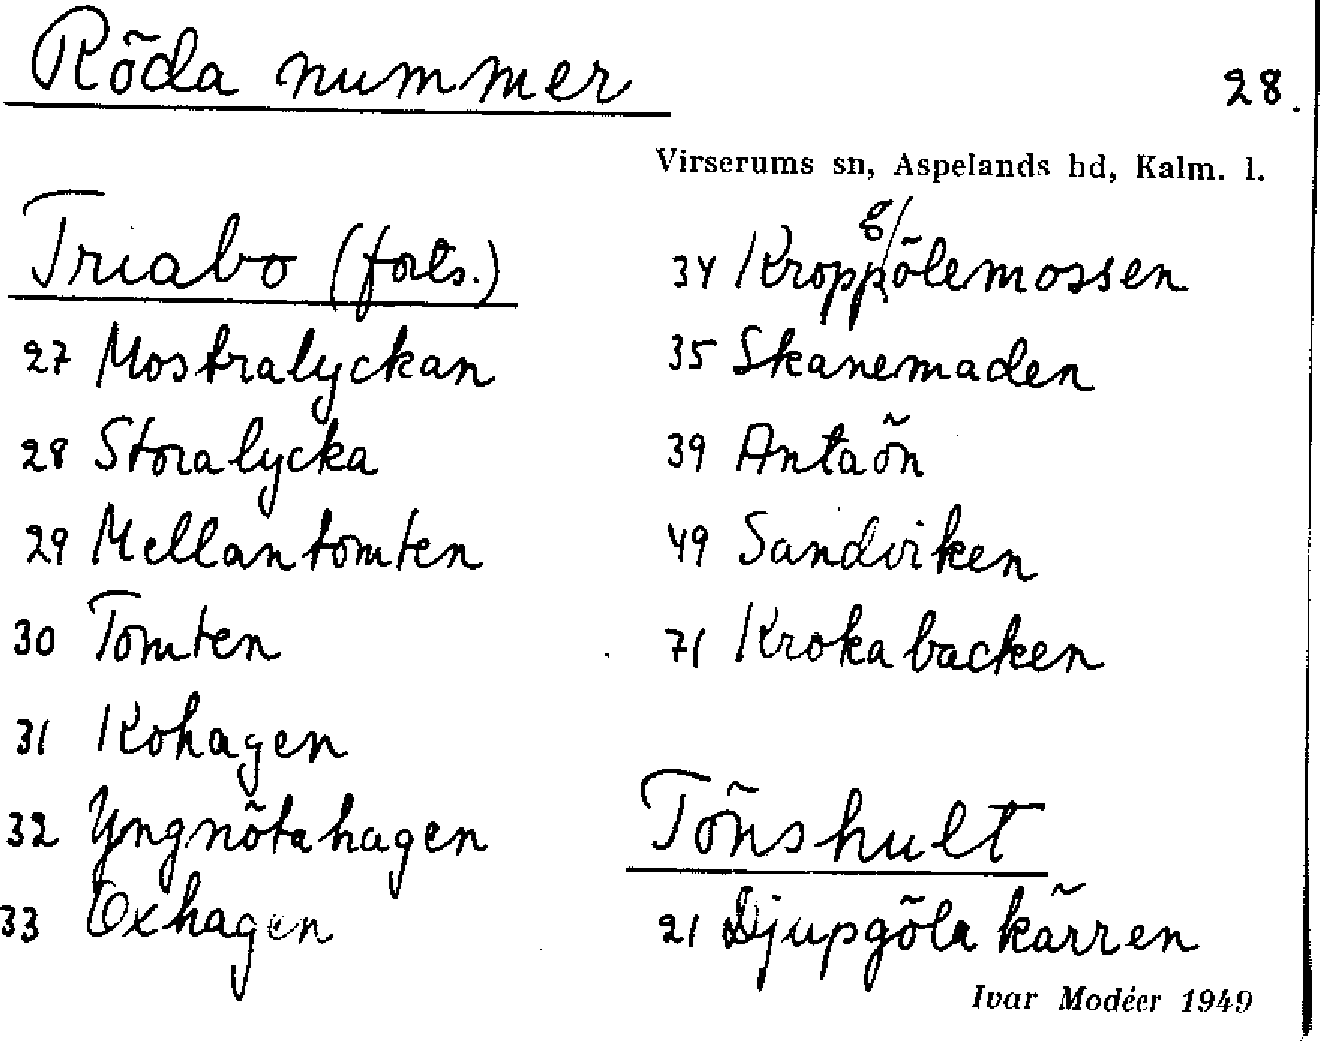 Röda nummer
28.
Virserums sn, Aspelands hd, Kalm. l.
Triabo (forts.)
27 Mostralyckan
28 Storalycka
29 Mellantomten
30 Tomten
31 Kohagen
32 Yngnötahagen
33 Oxhagen
g/
34 Kroppölemossen
35 Skanemaden
39 Antaön
49 Sandviken
71 Krokabacken
Tönshult
21 Djupgölakärren
Ivar Modéer 1949